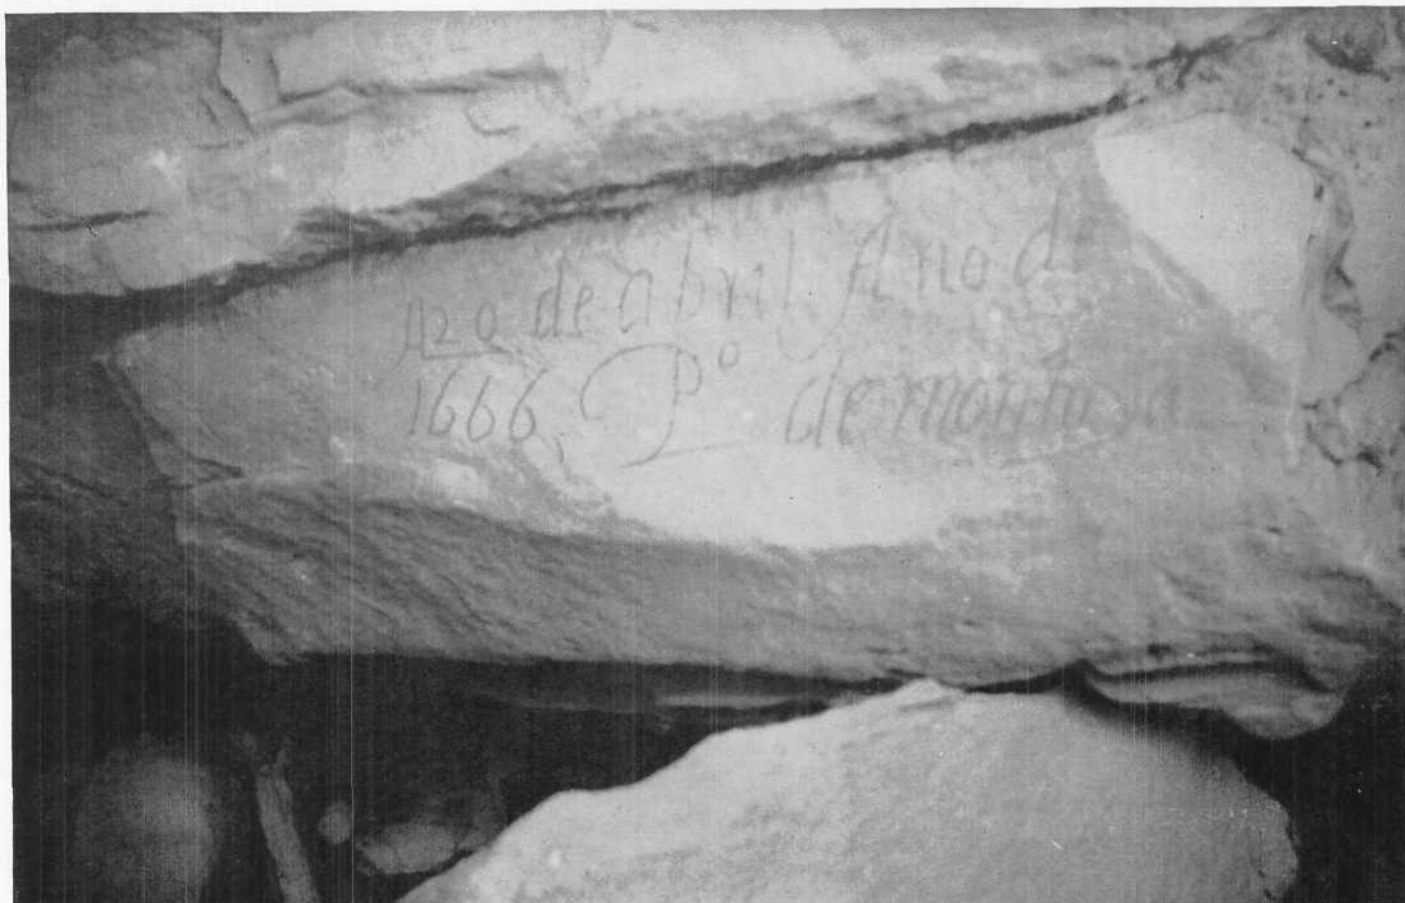 A 20 de abril Ano de
1666 Pº de montoya